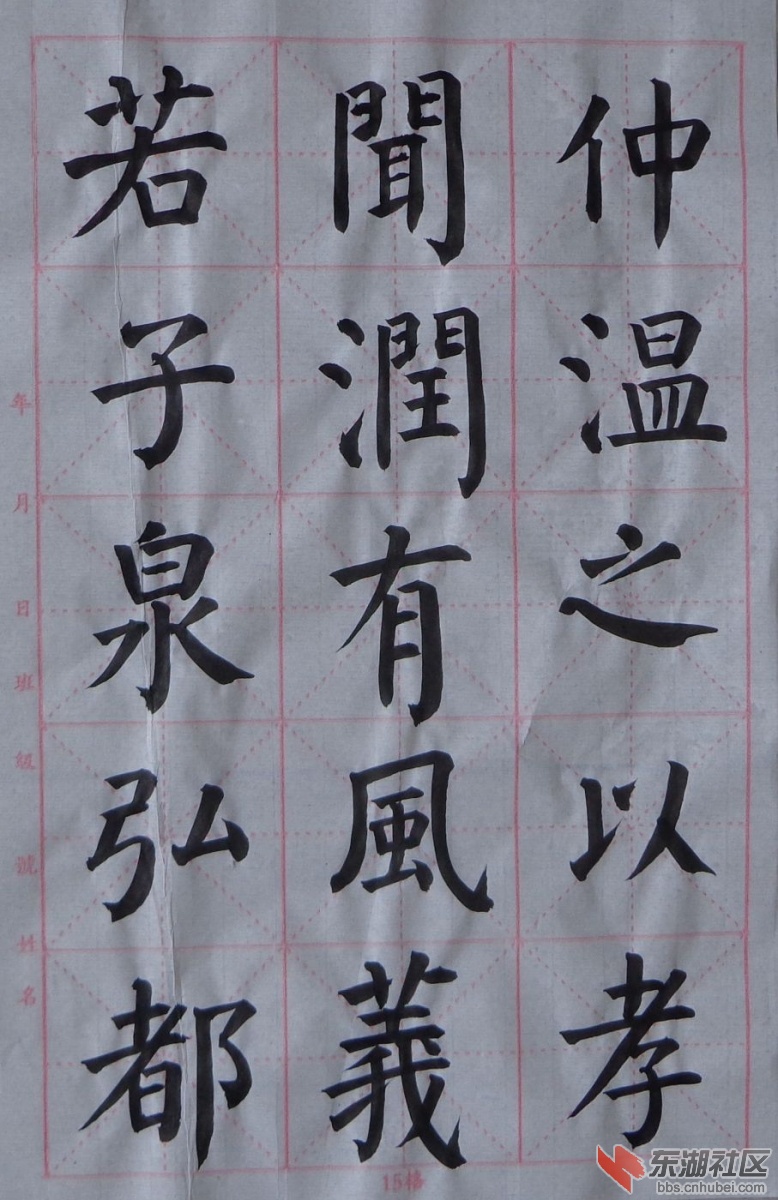 仲温之以孝
聞潤有風義
若子泉弘都
年月日班級號姓名
15格
东湖社区
bbs.cnhubei.com